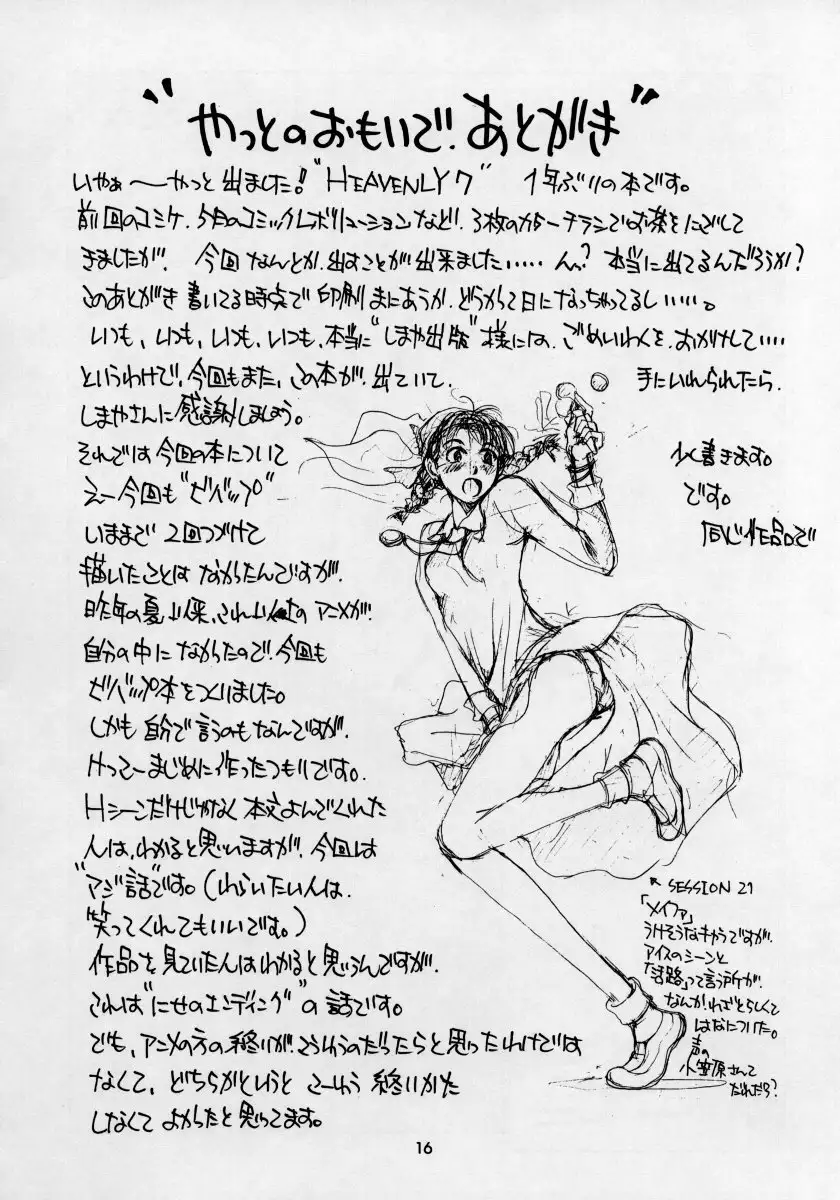 "やっとのおもいで! あとがき"
いやぁ〜やっと出ました! "HEAVENLY 7" 1年ぶりの本です。
前回のコミケ、5月のコミックレボリューションなど、3枚のカラーチラシでお茶をにごして
きましたが、今回なんとか、出すことが出来ました‥‥‥ ん? 本当に出てるんだろうか?
このあとがき書いてる時点で印刷まにあうか、どうかって日になっちゃってるし‥‥‥。
いつも、いつも、いつも、いつも、本当に"しまや出版"様には、ごめいわくを、おかけして‥‥
というわけで、今回もまた、この本が、出ていて、手にいれられたら、
しまやさんに感謝しましょう。
それでは今回の本について 少く書きます。
えー今回も"ビバップ" です。
いままで 2回つづけて 同じ作品で
描いたことは なかったんですが、
昨年の夏以来、これ以上のアニメが、
自分の中になかったので、今回も
ビバップ本をつくりました。
しかも 自分で言うのもなんですが、
けっこーまじめに作ったつもりです。
Hシーンだけじゃなく 本文よんでくれた
人は、わかると思いますが、今回は
"マジ話"です。(わらいたい人は、
笑ってくれてもいいです。)
作品を見ていた人はわかると思うんですが、
これは"にせのエンディング"の話です。
でも、アニメの方の終りが、こういうのだったらと思ったわけでは
なくて、どちらかというと こーゆう 終いかた
しなくて よかったと思ってます。
↖ SESSION 21
「メイファ」
うけそうなキャラですが、
アイスのシーンと
「活路」って言う所が、
なんか、わざとらしくて
はなについた。
声の
小笠原さんて
だれだろ?
16